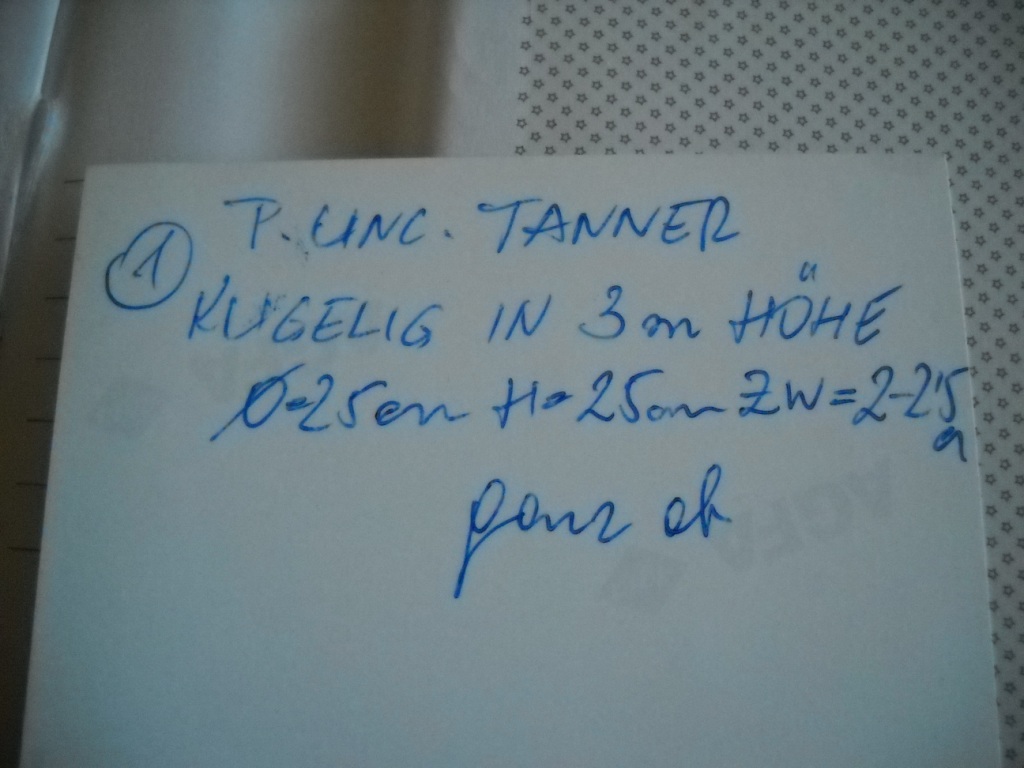 ① P. UNC. TANNER
KUGELIG IN 3m HÖHE
Ø=25cm H=25cm ZW=2-2'5
a
ganz ab